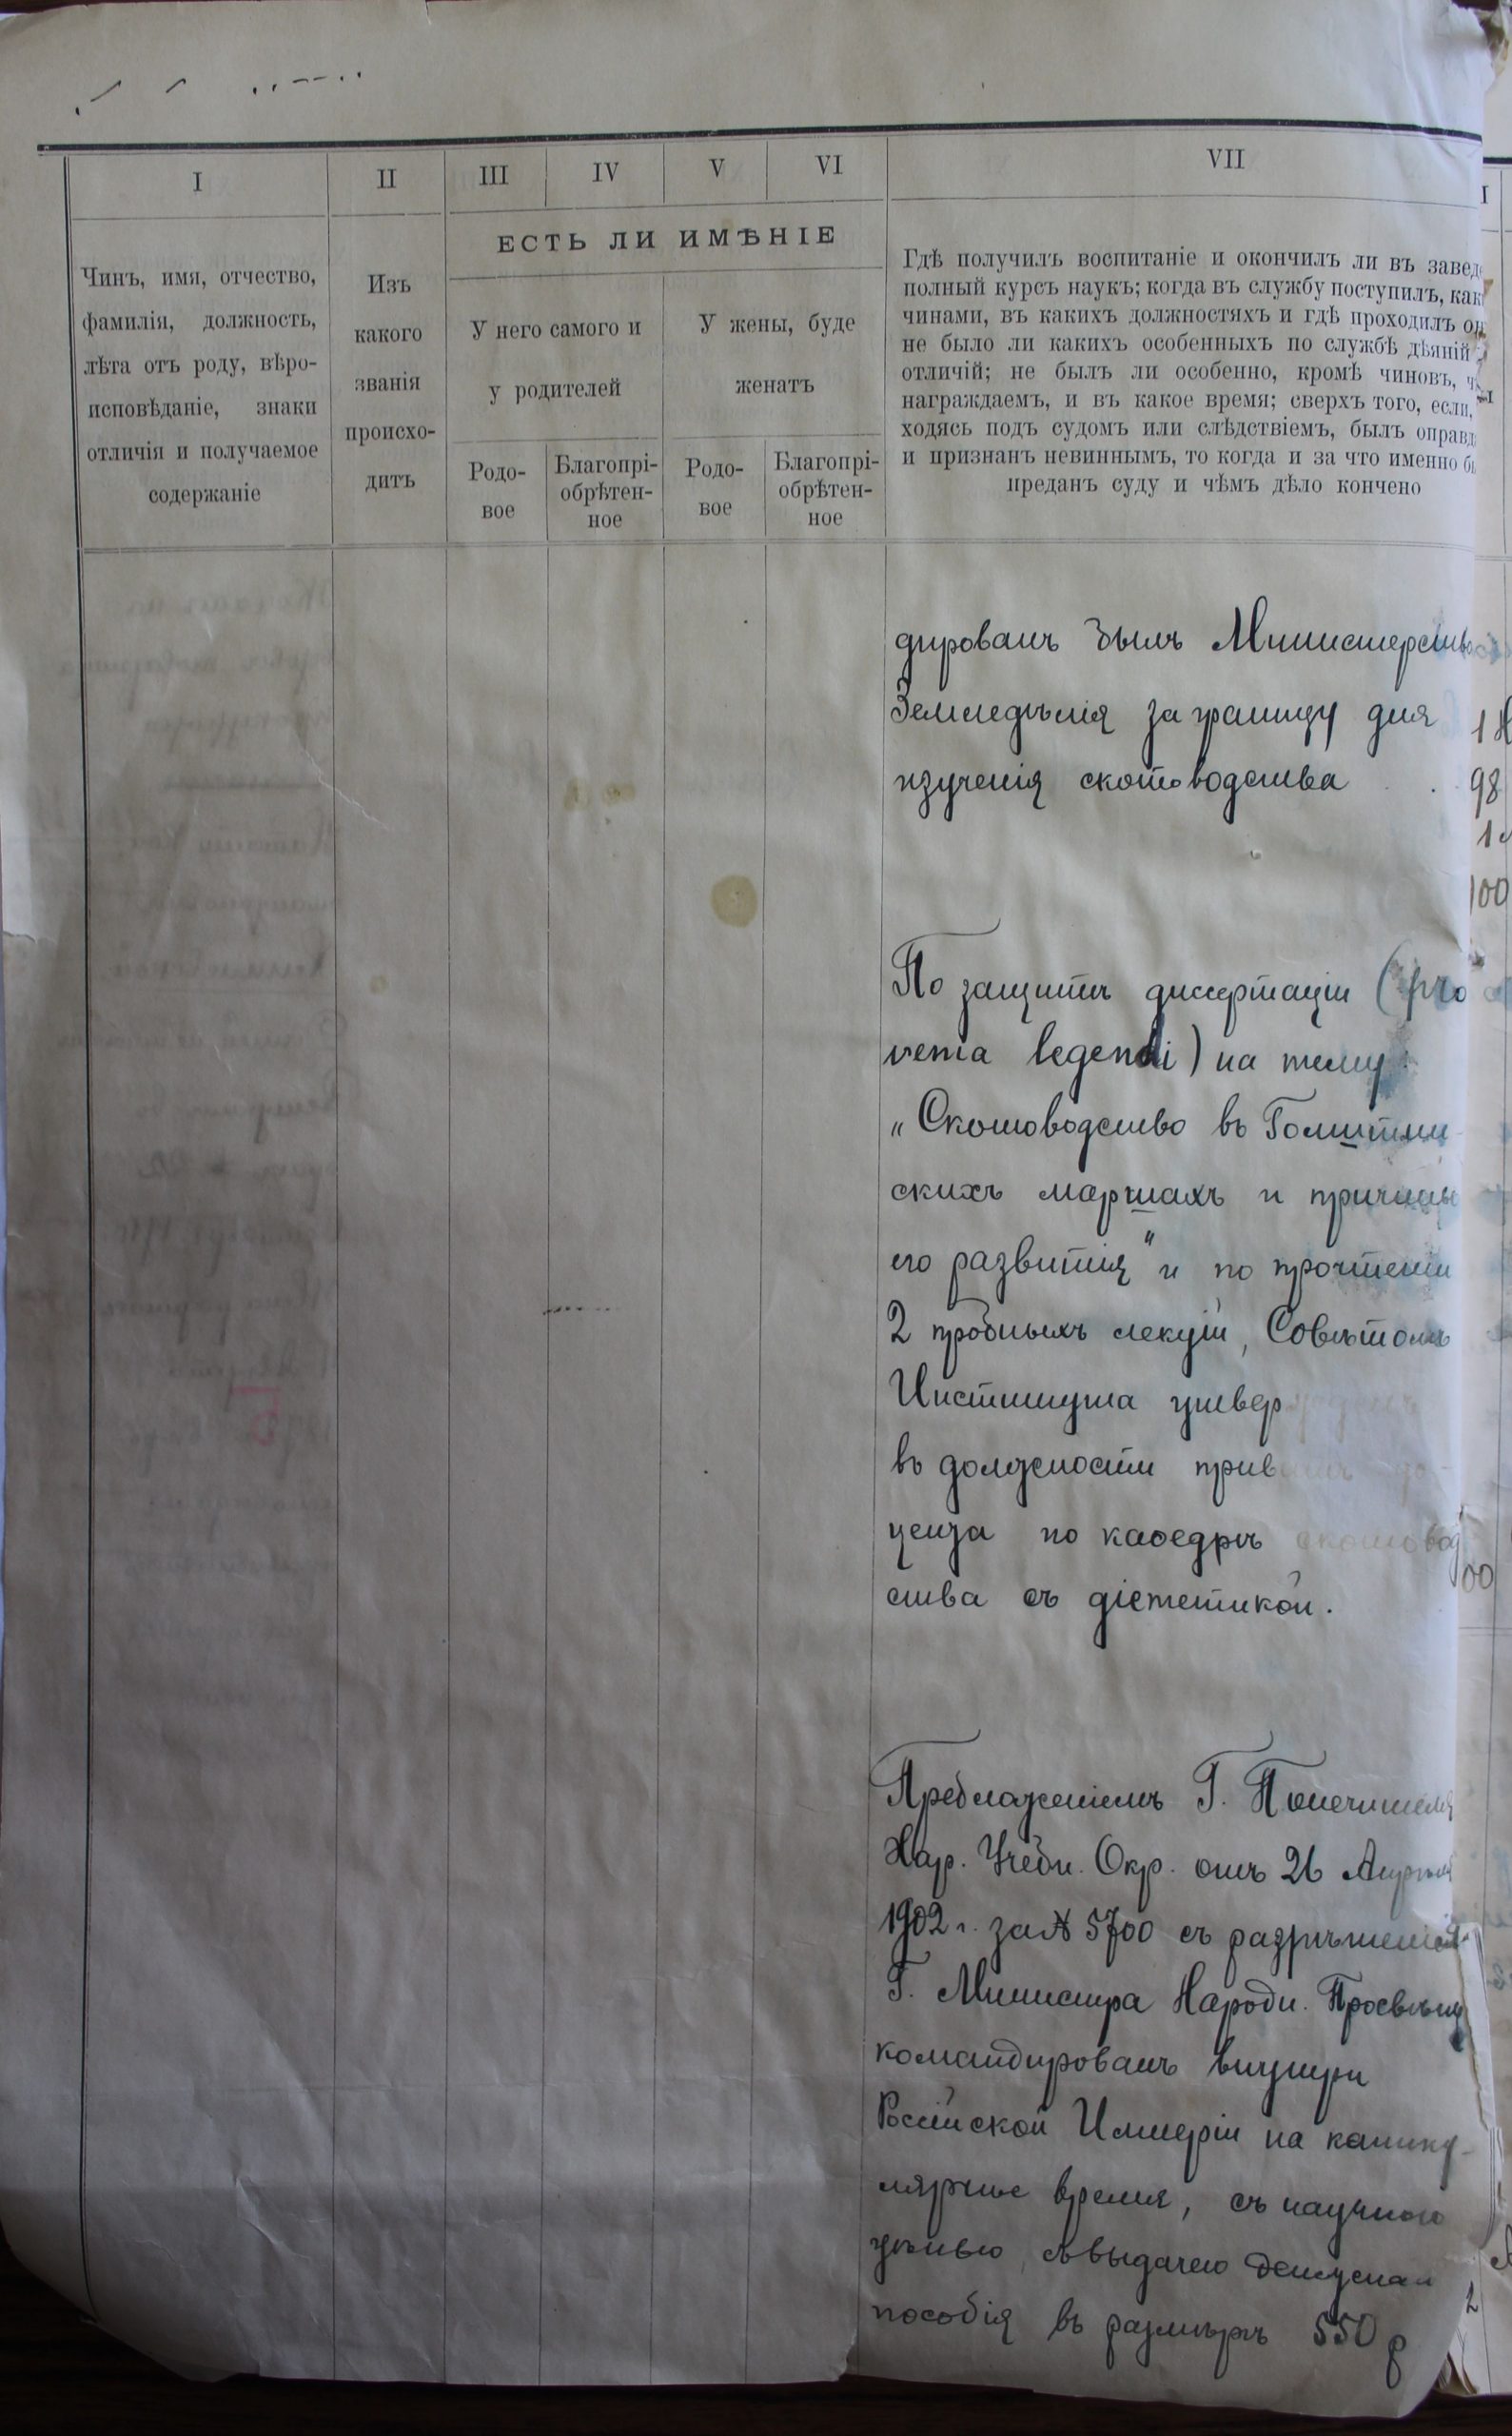 I II III IV V VI VII
ЕСТЬ ЛИ ИМѢНІЕ
Чинъ, имя, отчество,
фамилія, должность,
лѣта отъ роду, вѣро-
исповѣданіе, знаки
отличія и получаемое
содержаніе
Изъ
какого
званія
происхо-
дитъ
У него самого и
у родителей
У жены, буде
женатъ
Родо-
вое
Благопрі-
обрѣтен-
ное
Родо-
вое
Благопрі-
обрѣтен-
ное
Гдѣ получилъ воспитаніе и окончилъ ли въ завед
полный курсъ наукъ; когда въ службу поступилъ, как
чинами, въ какихъ должностяхъ и гдѣ проходилъ он
не было ли какихъ особенныхъ по службѣ дѣяній
отличій; не былъ ли особенно, кромѣ чиновъ, ч
награждаемъ, и въ какое время; сверхъ того, если,
ходясь подъ судомъ или слѣдствіемъ, былъ оправд
и признанъ невиннымъ, то когда и за что именно б
преданъ суду и чѣмъ дѣло кончено
дированъ былъ Министерство
Земледѣлія за границу для
изученія скотоводства
По защитѣ диссертаціи (pro
venia legendi) на тему:
„Скотоводство въ Голштин
скихъ маршахъ и причины
его развитія" и по прочтеніи
2 пробныхъ лекцій, Совѣтомъ
Института утвер
въ должности прив
цента по каѳедрѣ скотовод
ства съ діэтетикой.
Предложеніемъ Г. Попечителя
Хар. Учебн. Окр. отъ 26 Апрѣля
1902 г. за № 5700 съ разрѣшенія
Г. Министра Народн. Просвѣщ
командированъ внутри
Россійской Имперіи на канику-
лярное время, съ научною
цѣлью, съ выдачею
пособія въ размѣрѣ 550 р
98
100
00